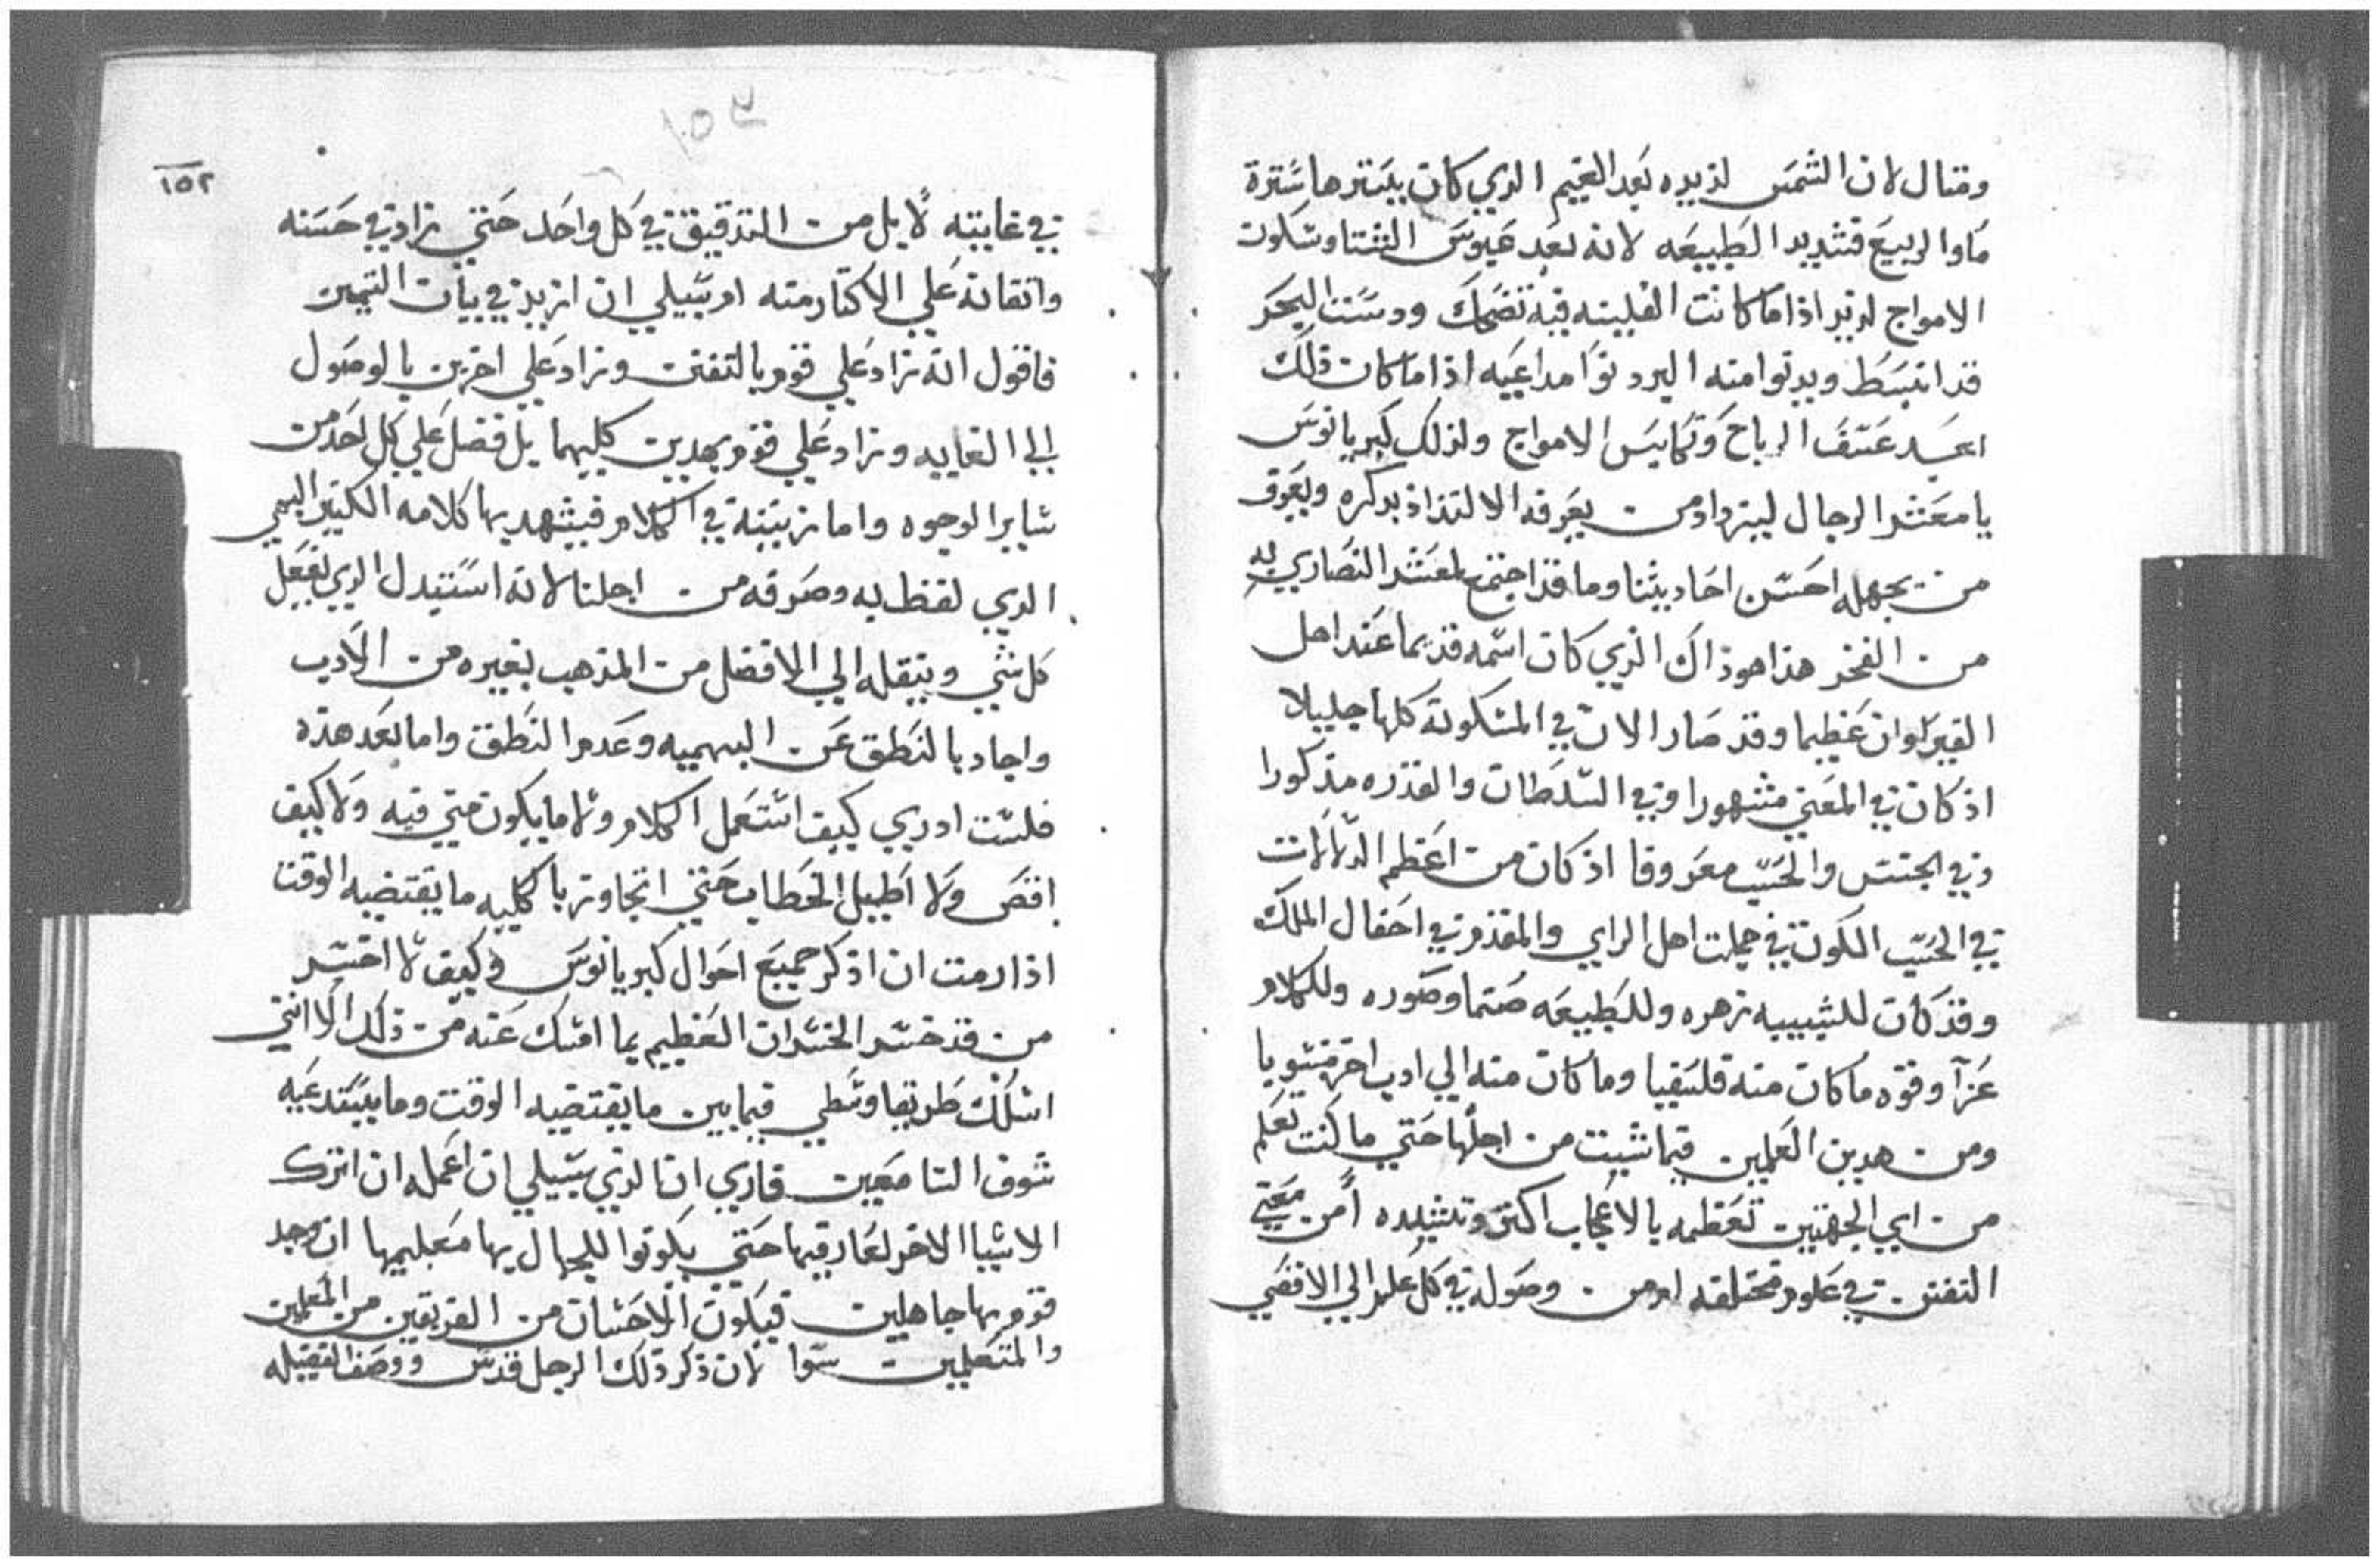 ومثال لان الشمس لذيذه بعد الغيم الدي كان يسترها سترة
ما والربيع فشديد الطبيعه لانه بعد عبوس الشتا وسكون
الامواج لذيذ اذا ما كانت الغلينه فيه تضحك ودست البحر
قد انبسط ويدنوا منه البر دنوا مداعبه اذا ما كان ذلك
بعد عسف الرياح وتكايس الامواج ولذلك كبريانوس
يا معشر الرجال ليزداد من يعرفه الالتذاذ بذكره ويعرف
من يجهله احسن احاديثنا وما قد اجتمع لمعشر النصاري به
من الفخر هذا هو ذاك الذي كان اسمه قديما عند اهل
القيراوان عظيما وقد صار الان في المسكونة كلها جليلا
اذ كان في المعني مشهورا وفي السلطان والقدره مذكورا
وفي الجنس والحسب معروفا اذ كان من اعظم الدلالات
في الحسب الكون في جملت اهل الراي والمقدم في احفال الملك
وقد كان للشبيبه زهره وللطبيعه صنما وصوره وللكلام
عزآ وقوه ما كان منه فلسفيا وما كان منه الي ادب اخر منسوبا
ومن هدين العلمين فيما شيت من اجلها حتي ما كنت تعلم
من اي الجهتين تعظمه بالاعجاب اكثر وتشيده أمن معني
التفنن في علوم مختلفه ام من وصوله في كل علم الي الاقصي
١٥٢
في غايته لا بل من التدقيق في كل واحد حتي زاد في حسنه
واتقانه علي الاكثار منه ام سبيلي ان ازيد في بيان التبيين
فاقول انه زاد علي قوم بالتفنن وزاد علي اخرين بالوصول
الي الغايه وزاد علي قوم بهدين كليهما بل فضل علي كل احد من
ساير الوجوه واما تربيته في الكلام فيشهد بها كلامه الكثير البهي
الدي لفظ به وصرفه من اجلنا لانه استبدل الدي يفعل
كل شي وينقله الي الافضل من المذهب بغيره من الادب
واجاد بالنطق عن البهميه وعدم النطق واما بعد هذه
فلست ادري كيف استعمل الكلام ولا ما يكون متي فيه ولا كيف
اقص ولا اطيل الخطاب حتي اتجاوز بالكليه ما يقتضيه الوقت
اذا رمت ان اذكر جميع احوال كبريانوس وكيف لا اخسر
من قد خسر الخسران العظيم بما امسك عنه من ذلك الا انني
اسلك طريقا وسطي فيما بين ما يقتضيه الوقت وما يستدعيه
شوف السامعين فاري ان الذي سبيلي ان اعمله ان اترك
الاشيا الاخر لعارفيها حتي يكونوا للجهال بها معلميها ان وجد
قوم بها جاهلين فيكون الاحسان من الفريقين من المعلمين
والمتعلمين سوا لان ذكر ذلك الرجل قدس ووصف الفضيله